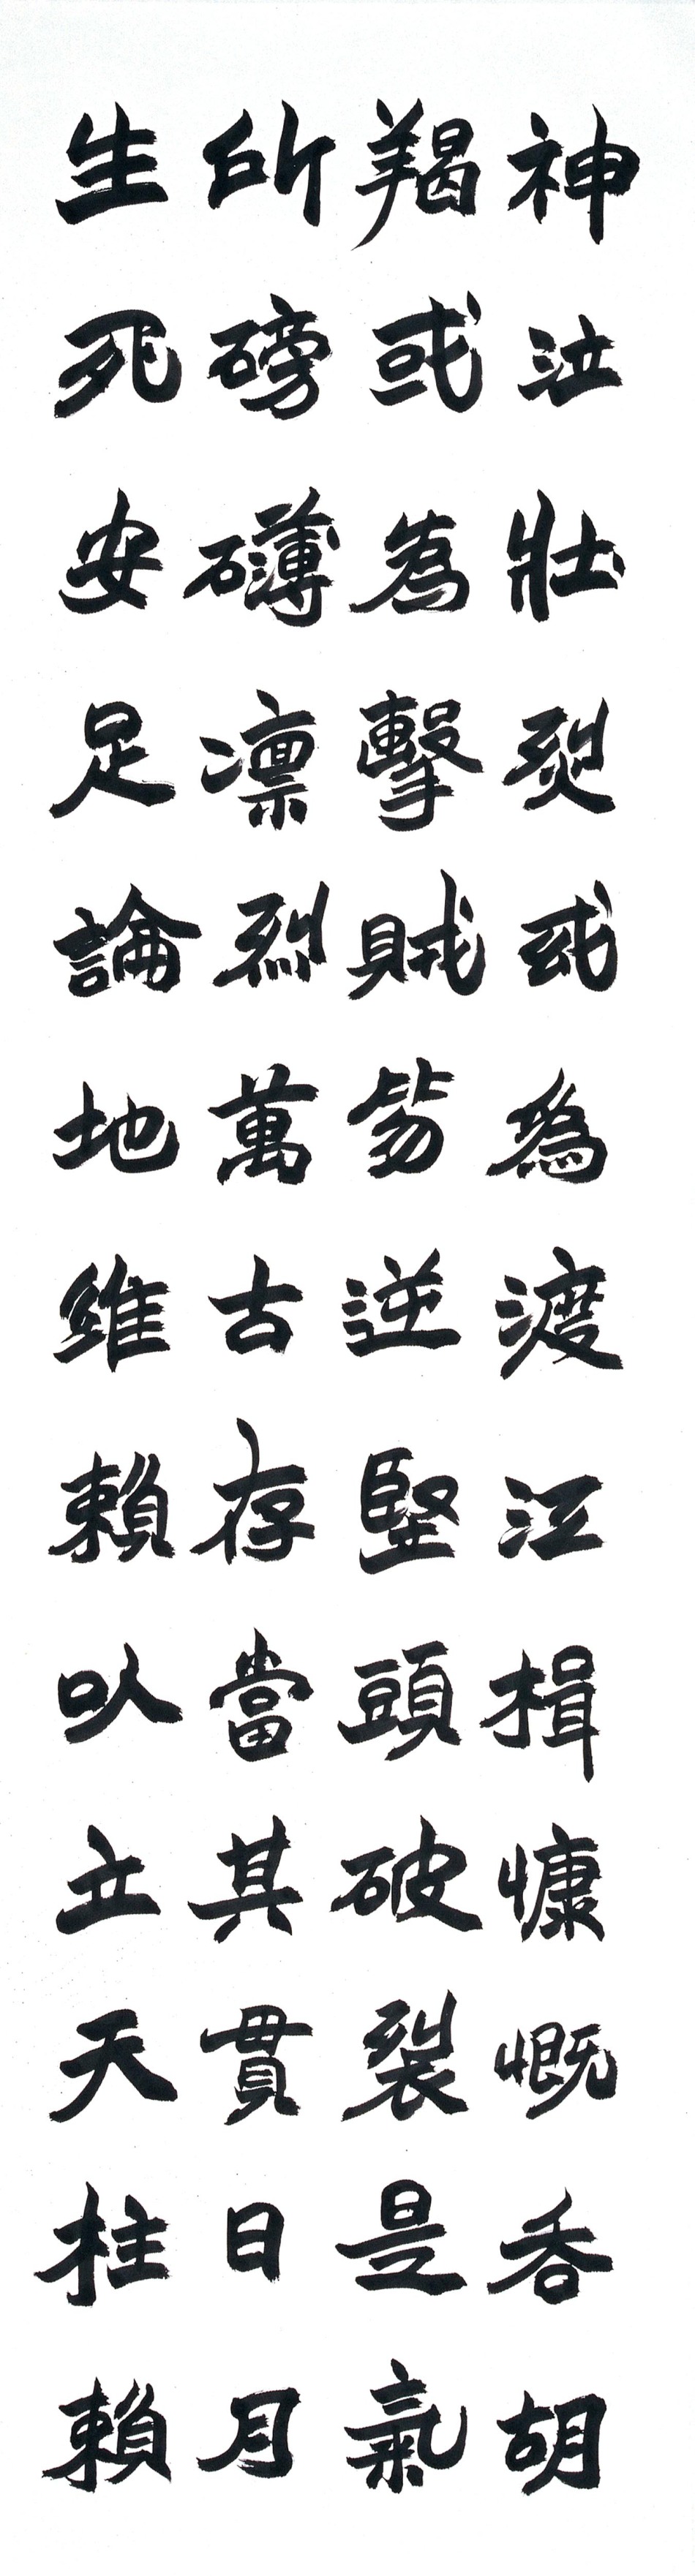 神泣壯烈或為渡江楫慷慨吞胡
羯或為擊賊笏逆豎頭破裂是氣
所磅礴凛烈萬古存當其貫日月
生死安足論地維賴以立天柱賴